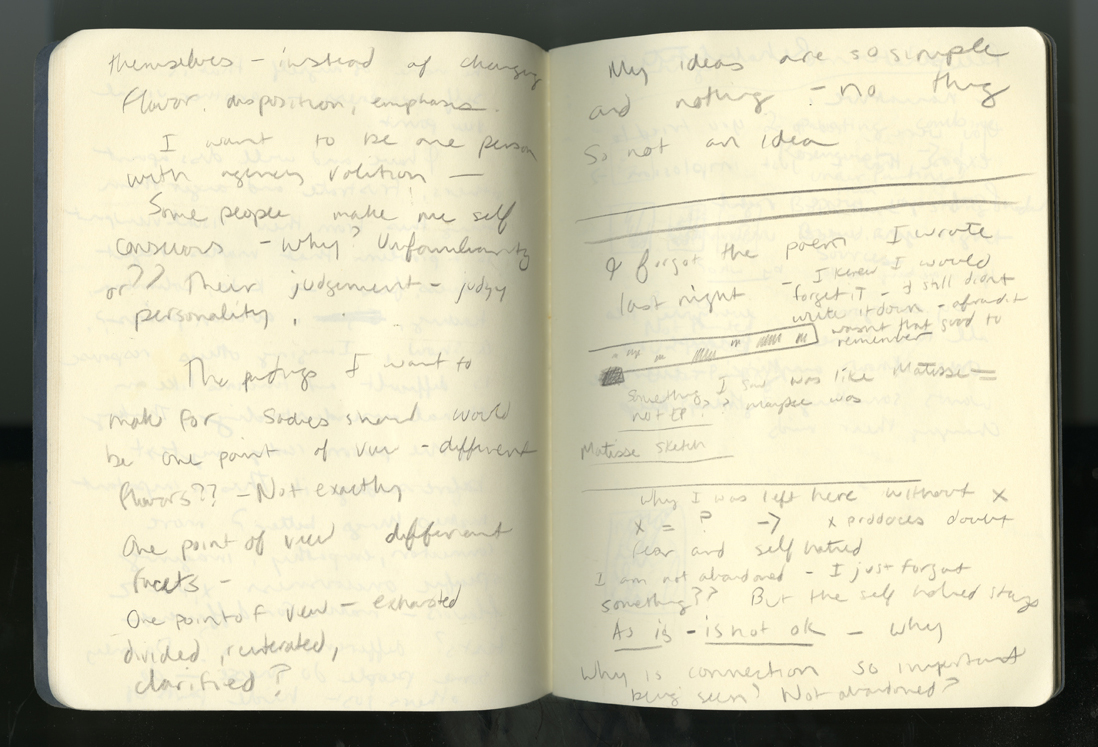 themselves – instead of changing
flavor. disposition, emphasis.
I want to be one person
with agency volition —
Some people make me self
conscious – why? Unfamiliarity
or?? Their judgement – judgy
personality.
The paintings I want to
make for Sadies show would
be one point of view – different
flavors?? – Not exactly
One point of view diffferent
facets –
One point of view – exhausted
divided, reiterated,
clarified?
My ideas are so simple
and nothing – no thing
So not an idea
I forgot the poem I wrote
last night – I knew I would
forget it – I still didnt
write it down – afraid it
wasnt that good to
remember
Something I saw was like Matisse
not EP? maybe was
Matisse sketch
Why I was left here without x
x = ? → x produces doubt
fear and self hatred
I am not abandoned – I just forgot
something?? But the self hatred stays
As is – is not ok – why
Why is connection so important
being seen? Not abandoned?